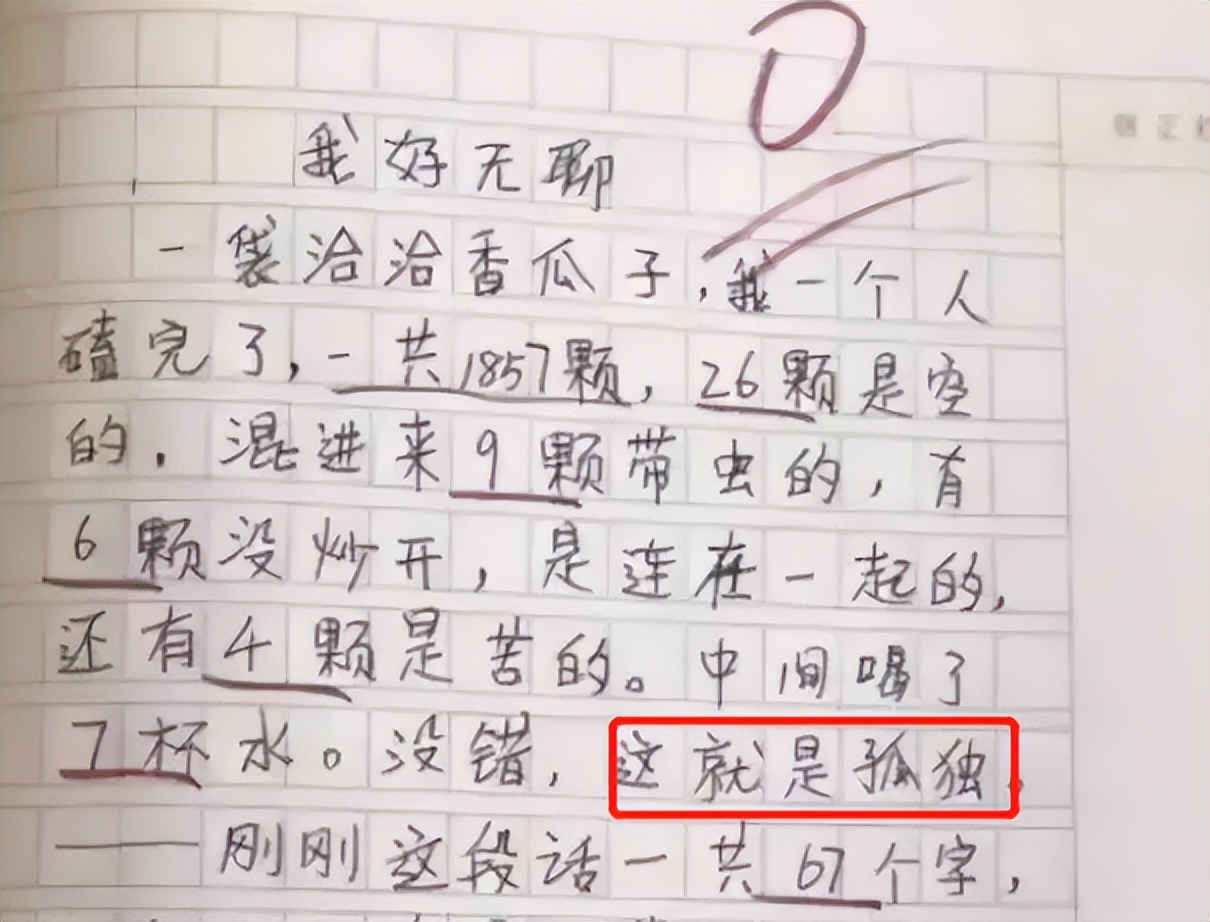 0
我好无聊
一袋洽洽香瓜子,我一个人
磕完了,一共1857颗,26颗是空
的,混进来9颗带虫的,有
6颗没炒开,是连在一起的,
还有4颗是苦的。中间喝了
7杯水。没错,这就是孤独,
——刚刚这段话一共67个字,